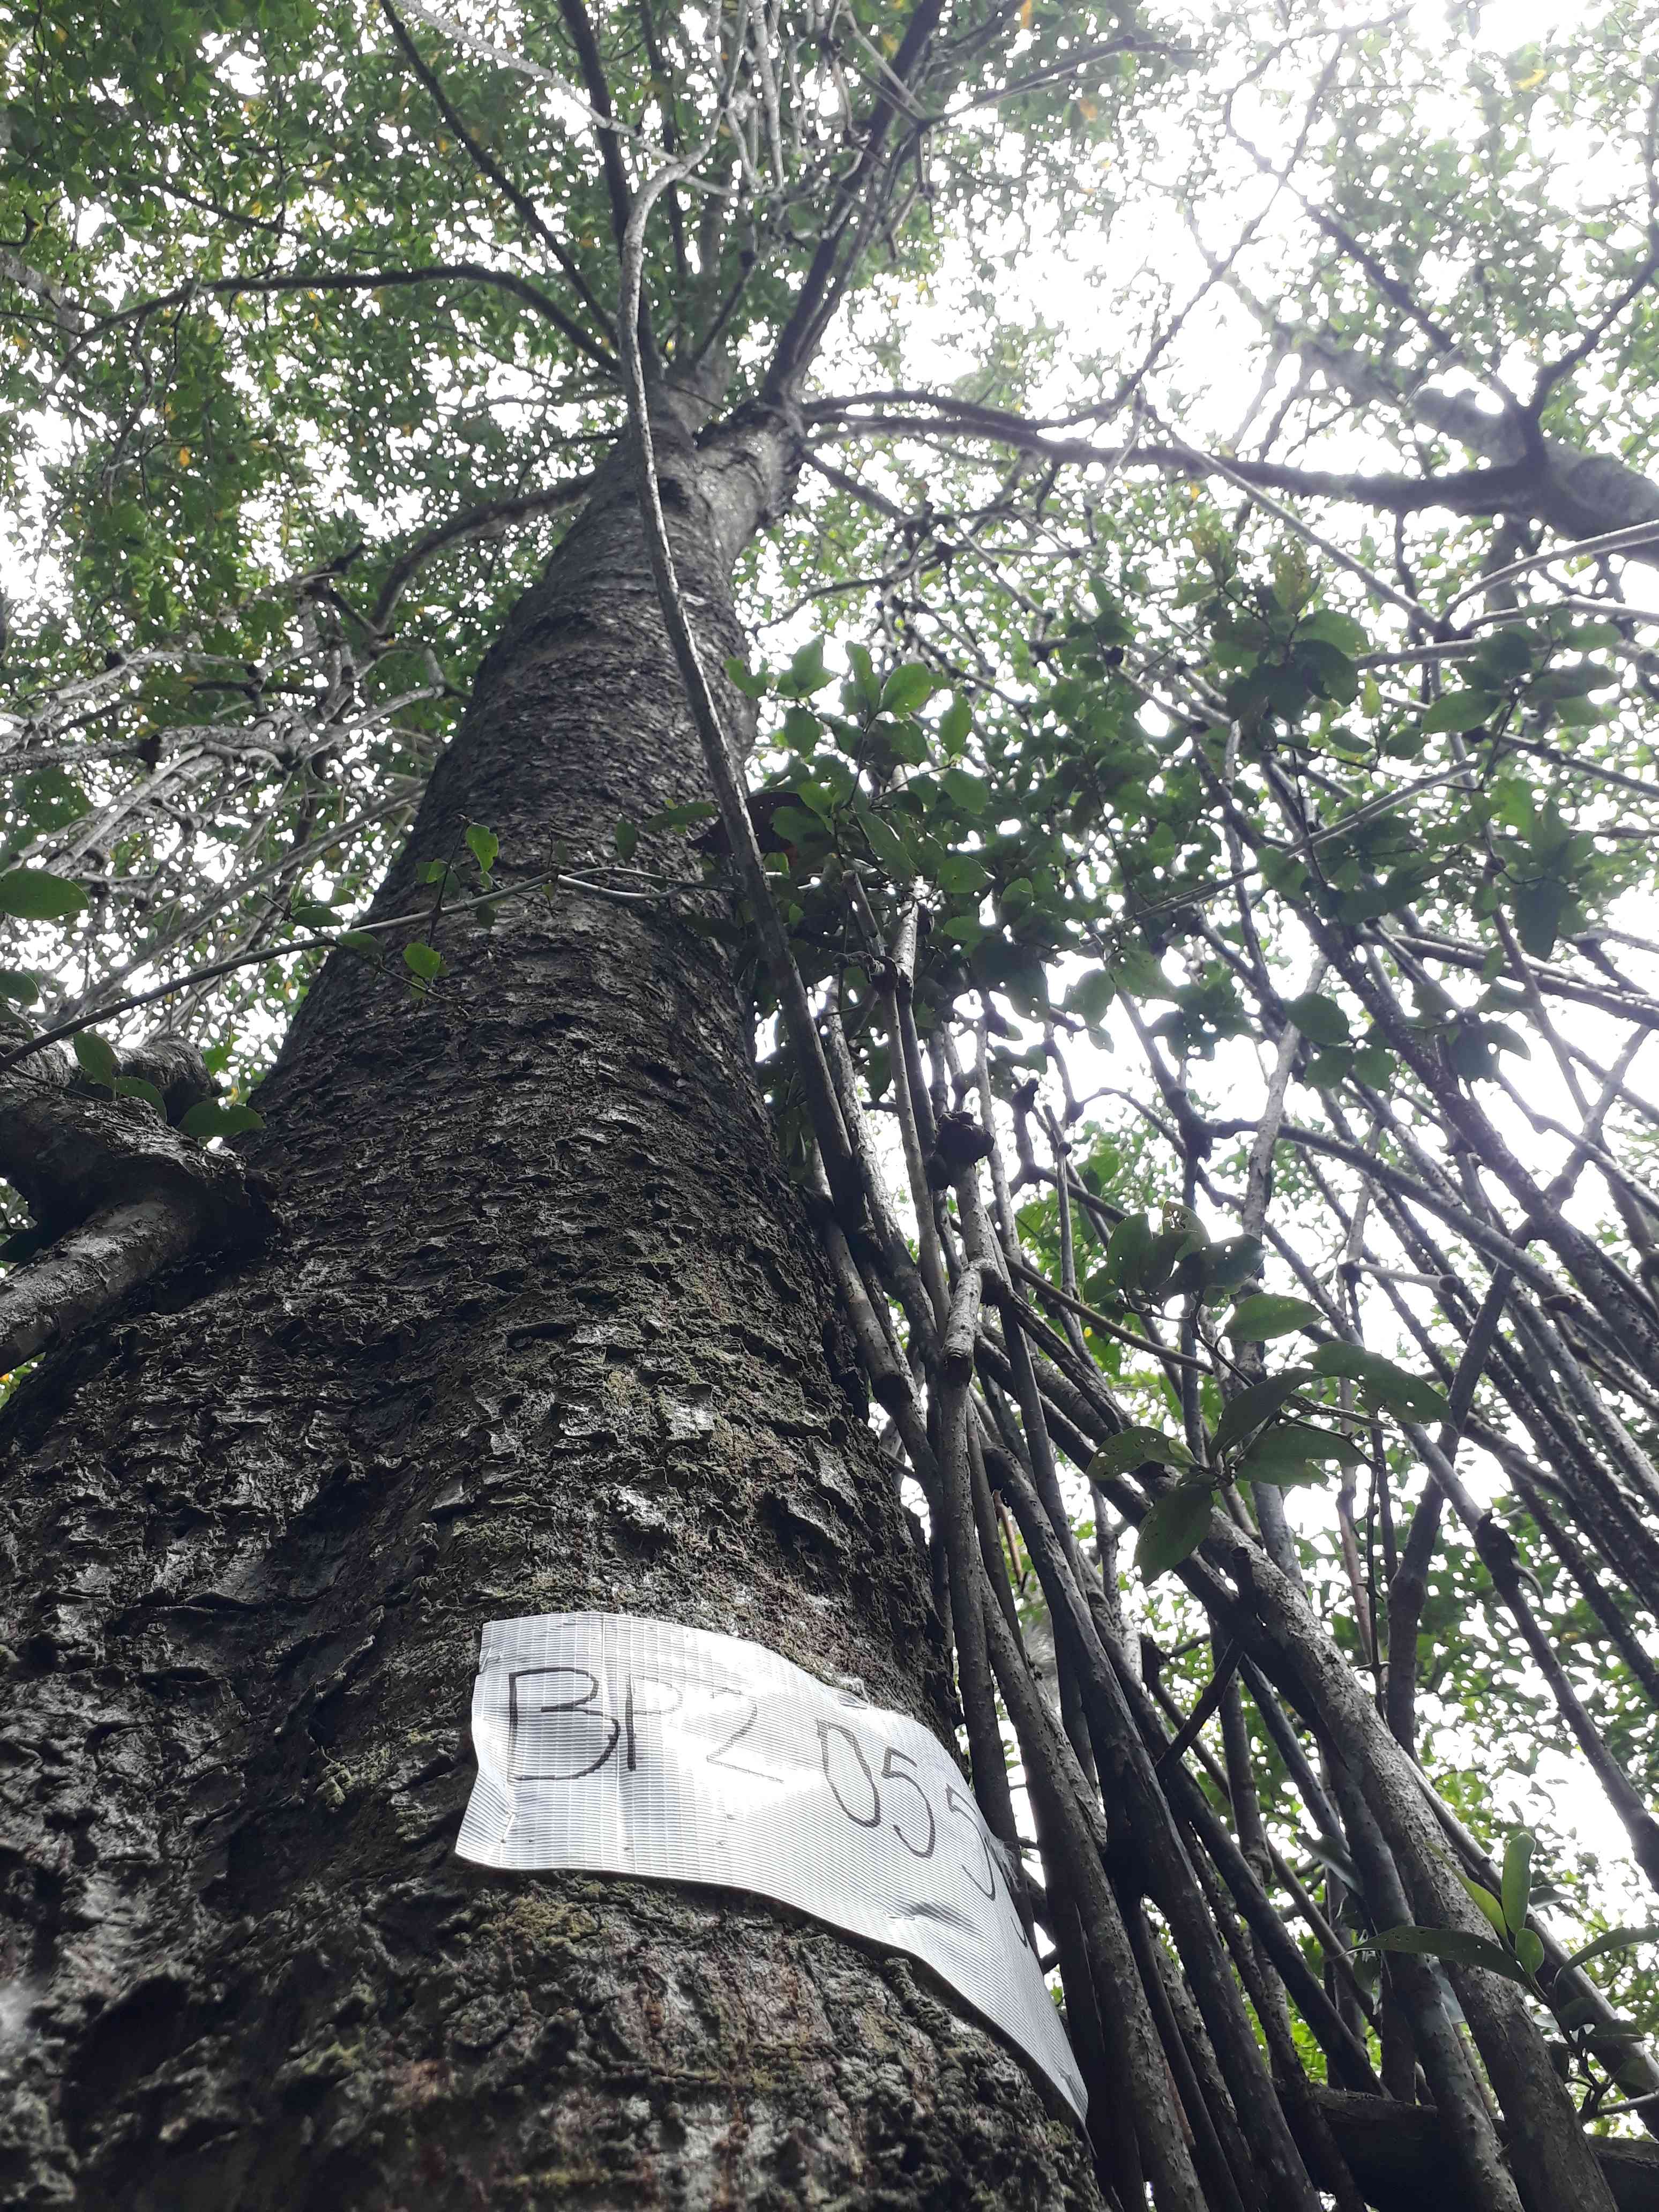 BP2 055